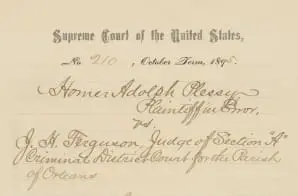 Supreme Court of the United States,
No. 210, October Term, 1895.
Homer Adolph Plessy
Plaintiff in Error,
vs.
J. H. Ferguson, Judge of Section "A"
Criminal District Court for the Parish
of Orleans